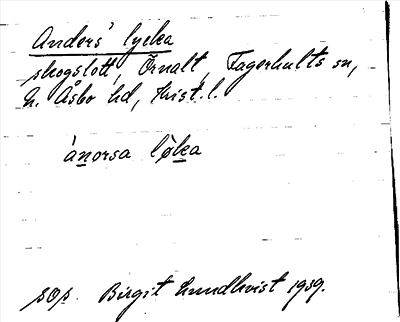 Anders' lycka
skogslott, Örnalt, Fagerhults sn,
N. Åsbo hd, Krist. l.
ánorsa lø̂ka
sop. Birgit Lundkvist 1939.